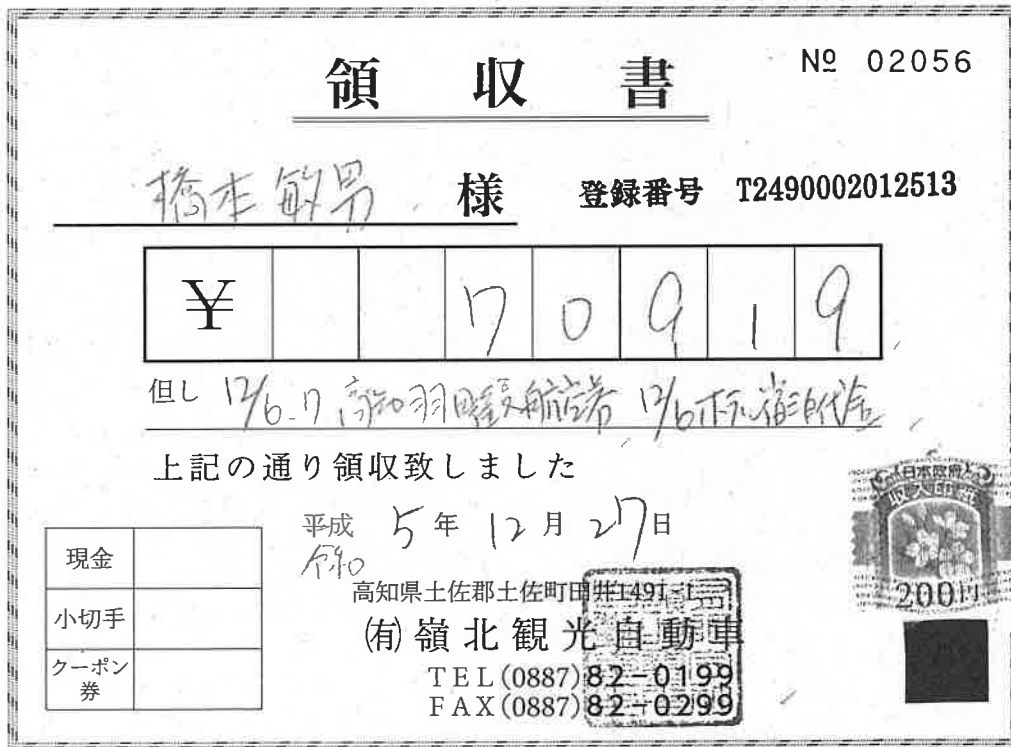 領収書
№ 02056
橋本敏男 様
登録番号 T2490002012513
¥ 70919
但し 12/6-7 高知羽田往復航空券 12/6ホテル宿泊代金
上記の通り領収致しました
平成 5年 12月 27日
令和
現金
小切手
クーポン券
高知県土佐郡土佐町田井1491-1
(有)嶺北観光自動車
TEL(0887)82-0199
FAX(0887)82-0299
日本政府
収入印紙
200円